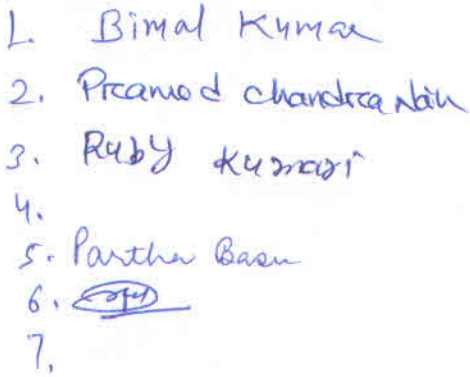 1. Bimal Kumar
2. Pramod Chandra Naik
3. Ruby Kumari
4.
5. Partha Basu
6.
7.